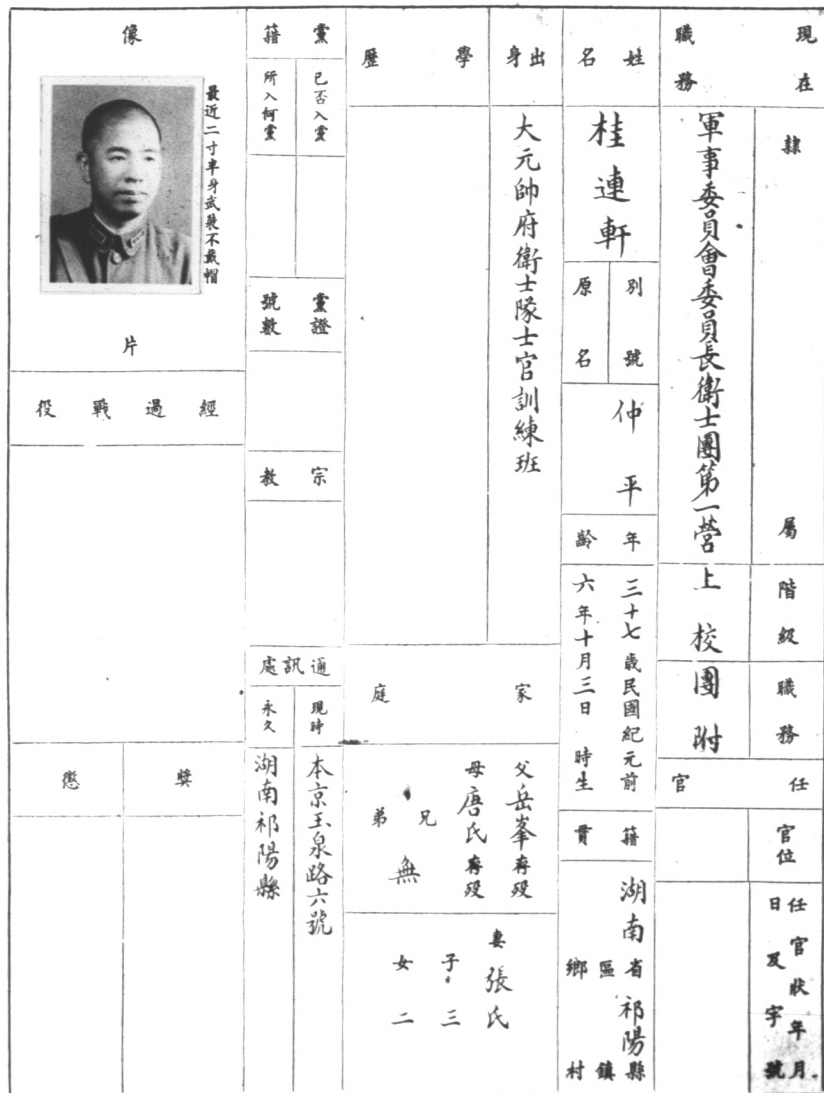 現在職務
隸屬
軍事委員會委員長衛士團第一營
階級
上校
職務
團附
任官
官位
任官狀年月日及字號
姓名
桂連軒
別號
原名
仲平
年齡
三十七歲民國紀元前
六年十月三日 時生
籍貫
湖南省祁陽縣
區 鎮
鄉 村
出身
大元帥府衛士隊士官訓練班
學歷
家庭
父岳峯存歿
母唐氏存歿
兄弟 無
妻張氏
子 三
女 二
黨籍
已否入黨
所入何黨
黨證號數
宗教
通訊處
現時
本京玉泉路六號
永久
湖南祁陽縣
像片
最近二寸半身武裝不戴帽
經過戰役
獎
懲